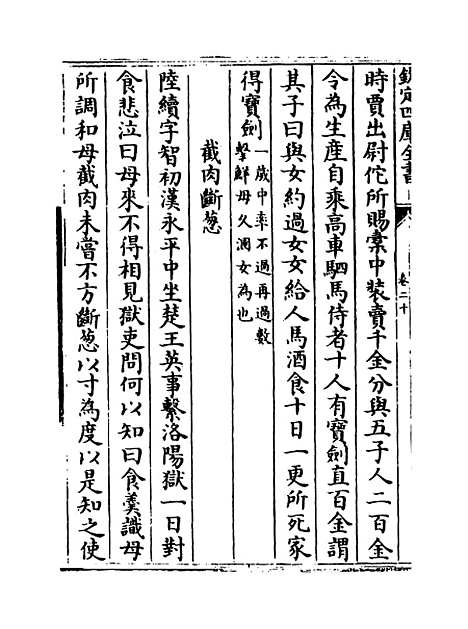 欽定四庫全書
卷二十
時賈出尉佗所賜橐中裝賣千金分與五子人二百金
令為生産自乘高車駟馬侍者十人有寶劍直百金謂
其子曰與女約過女女給人馬酒食十日一更所死家
得寶劍一歲中率不過再過數
擊鮮毋久溷女為也
截肉斷葱
陸續字智初漢永平中坐楚王英事繫洛陽獄一日對
食悲泣曰母來不得相見獄吏問何以知曰食羮識母
所調和母截肉未嘗不方斷葱以寸為度以是知之使